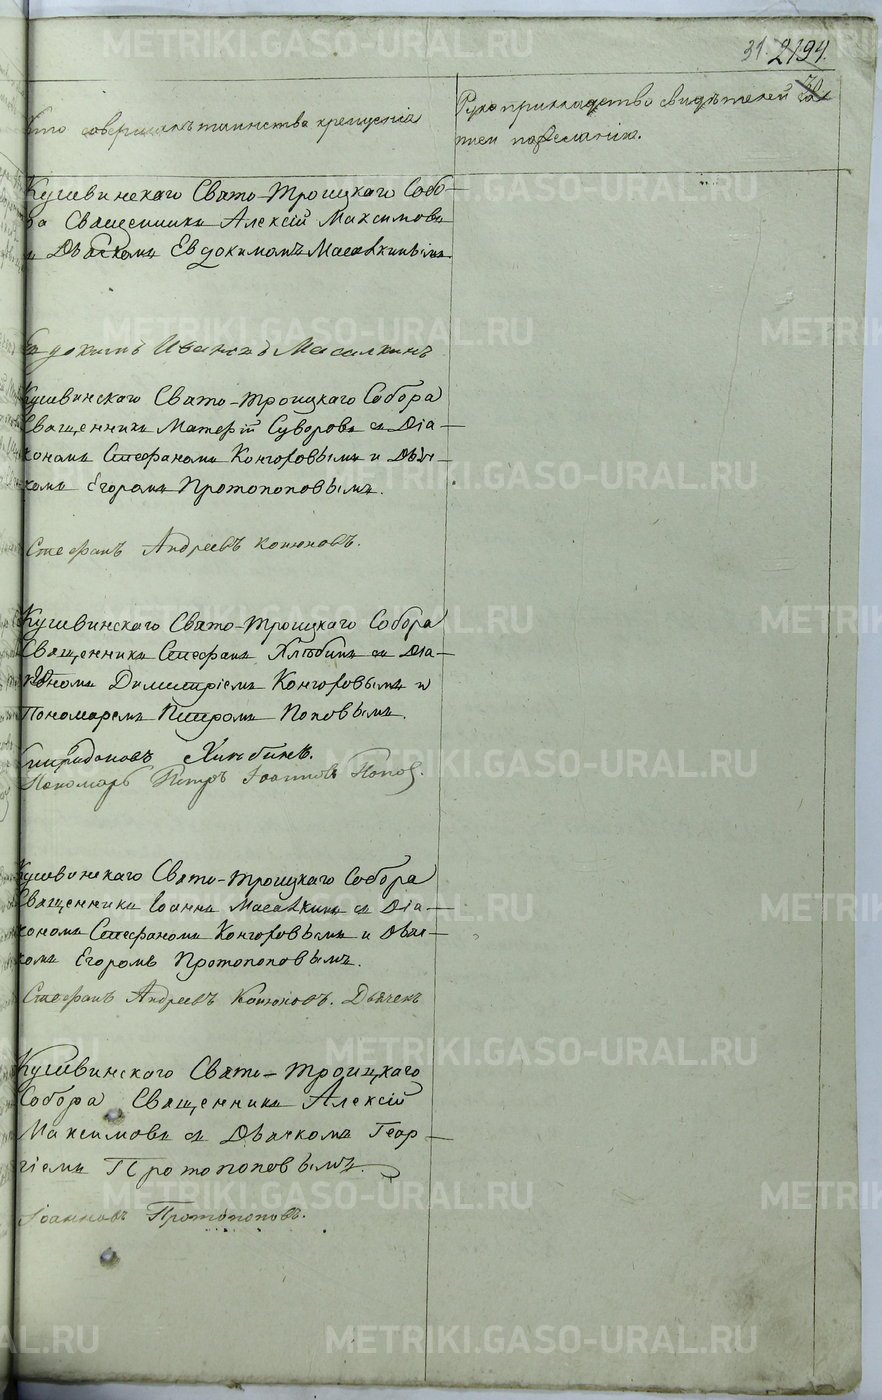 31. 2194.
30
Кто совершалъ таинства крещенія
Рукоприкладство свидѣтелей
Кушвинскаго Свято-Троицкаго Собо-
ра Священникъ Алексій Максимовъ
съ Дьячкомъ Евдокимомъ Масалкинымъ
Евдокимъ Ивановъ Масалкинъ
Кушвинскаго Свято-Троицкаго Собора
Священникъ Матѳей Суворовъ съ Діа-
кономъ Стефаномъ и Дьяч-
комъ Егоромъ Протопоповымъ.
Стефанъ Андреевъ Конюховъ.
Кушвинскаго Свято-Троицкаго Собора
Священникъ Стефанъ Хлѣбинъ съ Діа-
кономъ Димитріемъ и
Пономаремъ Петромъ Поповымъ.
Хлѣбинъ.
Пономарь Петръ Іоанновъ Поповъ.
Кушвинскаго Свято-Троицкаго Собора
Священникъ Іоаннъ Масалкинъ съ Діа-
кономъ Стефаномъ и Дьяч-
комъ Егоромъ Протопоповымъ.
Стефанъ Андреевъ Конюховъ. Дьячекъ
Кушвинскаго Свято-Троицкаго
Собора Священникъ Алексій
Максимовъ съ Дьячкомъ Геор-
гіемъ Протопоповымъ.
Іоанновъ Протопоповъ.
METRIKI.GASO-URAL.RU